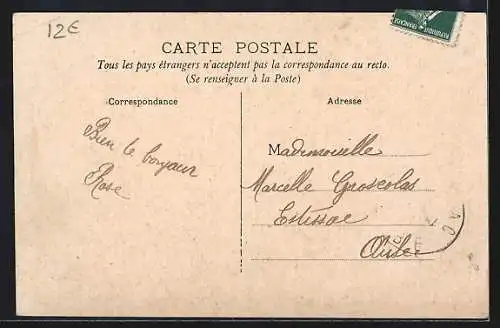 12€
CARTE POSTALE
Tous les pays étrangers n'acceptent pas la correspondance au recto.
(Se renseigner à la Poste)
Correspondance
Adresse
Bien le bonjour
Rose
Mademoiselle
Marcelle Groscolas
Estissac
Aube